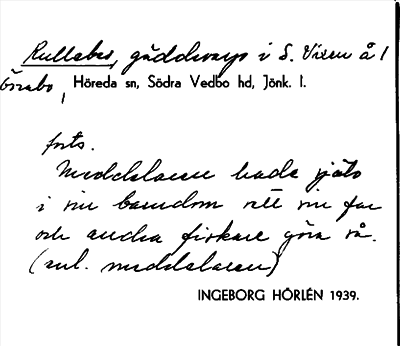 Rullebo, gäddvarp i S. Vixen å I
Görabo, Höreda sn, Södra Vedbo hd, Jönk. l.
forts.
Meddelaren hade själv
i sin barndom sett sin far
och andra fiskare göra så.
(enl. meddelaren)
INGEBORG HÖRLÉN 1939.